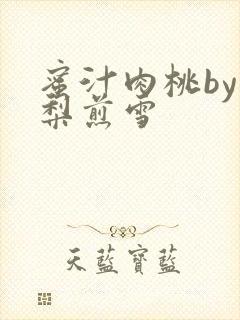 蜜汁肉桃by
梨煎雪
天藍寶藍